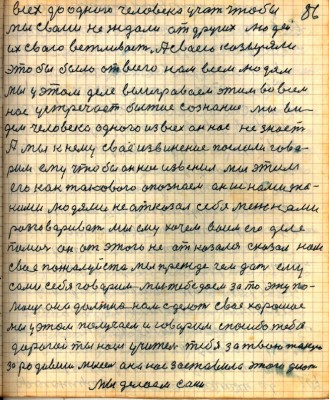 86
всех до одного человека учат чтобы
мы с вами не ждали от других людей
их своего
это бы было от всего нам всем людям
мы у этом деле выиграваем этим во всем
нас устречает бытие сознание мы ви-
дем человека одного из всех он нас не знает
А мы к нему своё извинение послали гово-
рим ему чтобы он нас извенил мы этим
его как такового опознаем он и нами та-
кими людями не отказал себя меж нами
разговаривать мы ему хочем в его деле
помоч он от этого не отказался сказал нам
свое пожалуйста мы прежде чем дать ему
сами себя говорим мы тебе даем за то эту по-
мощь она должна нам сделать свое хорошее
мы у этом получаем и говорим спасибо тебе
дорогой ты наш учитель тебя за твою такую
зародившую мысль она нас заставила этого
мы делаем сами